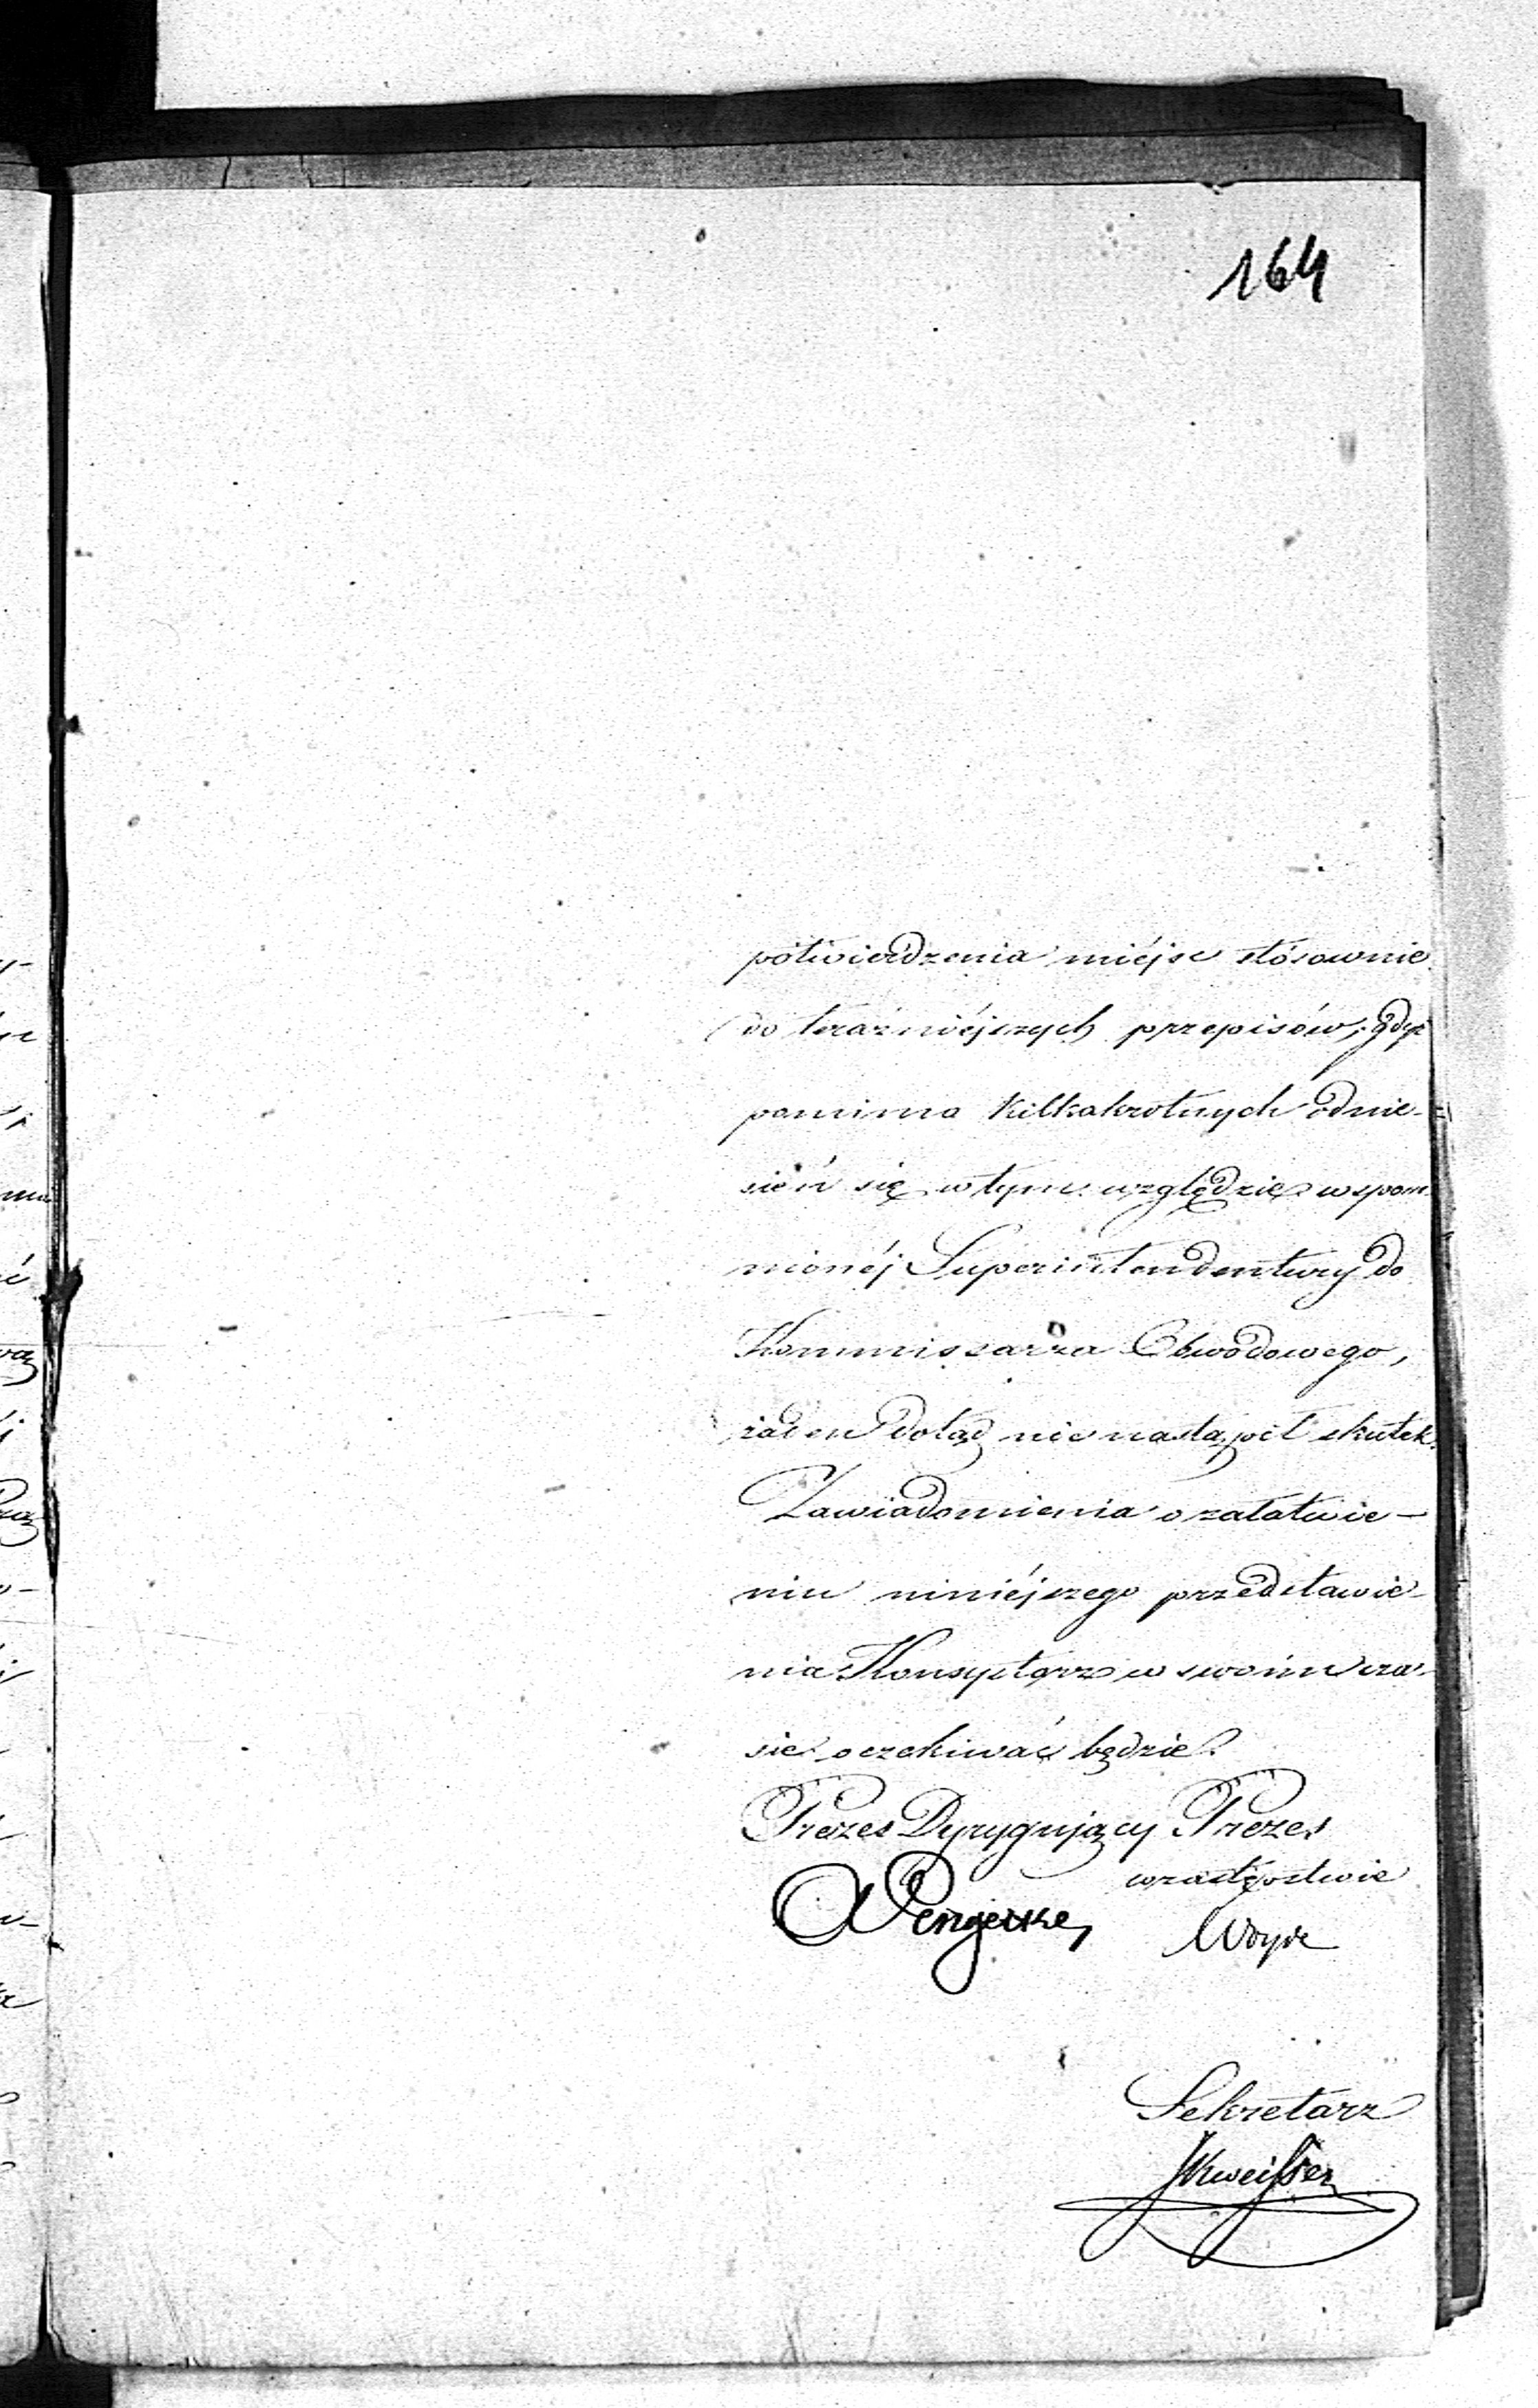 164
potwierdzenia miéjsc stósownie
do teraźniéjszych przepisów, gdyż
pomimo kilkakrotnych odnie-
sień się w tym względzie wspom-
nionéj Superintendentury do
Kommissarza Obwodowego,
żaden dotąd nie nastąpił skutek.
Zawiadomienia o załatwie-
niu niniéjszego przedstawie-
nia Konsystorz w swoim cza-
sie oczekiwać będzie.
Prezes Dyrygujący Prezes
w zastępstwie
Wengerke Woyde
Sekretarz